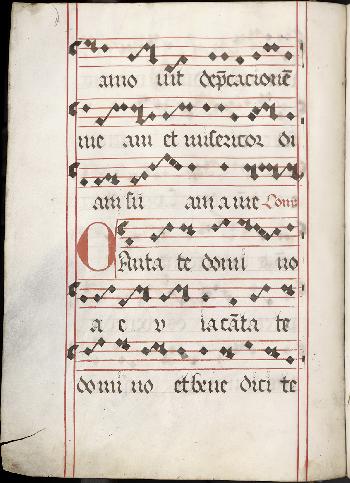 amo vit dep̄cationē
me am et misericor di
am su am a me Com̄
Cauta te domi no
a e v ia cāta te
domi no et bene dici te